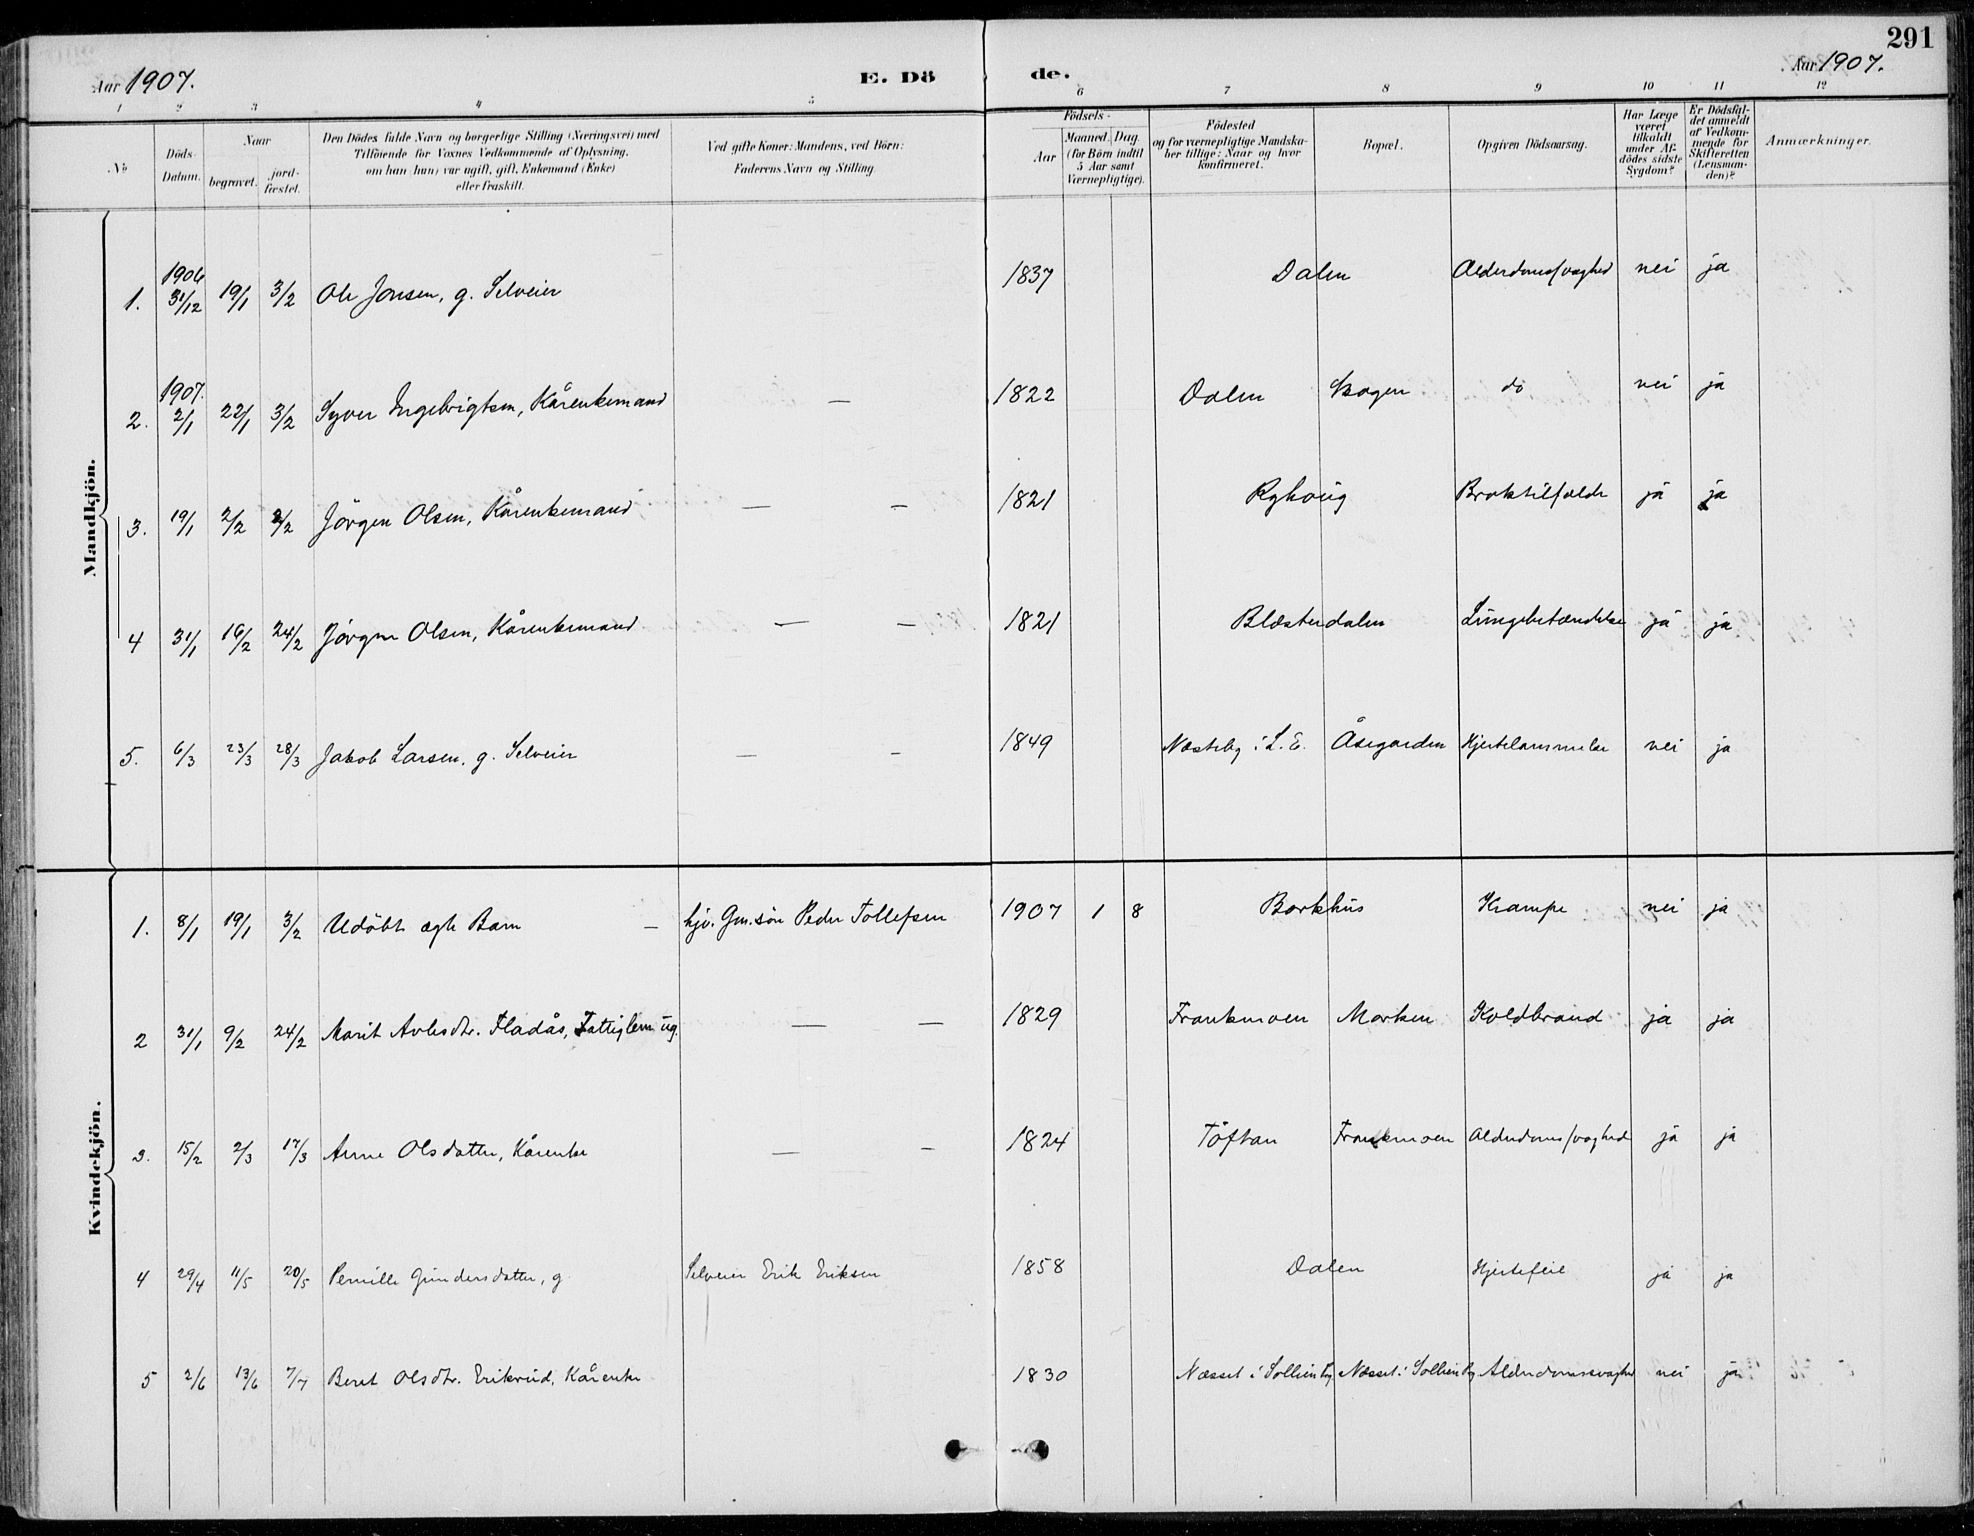 291
Aar 1907. E. Dö de. Aar 1907.
1 2 3 4 5 6 7 8 9 10 11 12
No
Döds-Datum.
Naar
begravet.
jord-fæstet.
Den Dödes fulde Navn og borgerlige Stilling (Næringsvei) med
Tilföiende for Voxnes Vedkommende af Oplysning,
om han (hun) var ugift, gift, Enkemand (Enke)
eller fraskilt.
Ved gifte Koner: Mandens, ved Börn:
Faderens Navn og Stilling.
Födsels-
Aar
Maaned. Dag.
(for Börn indtil
5 Aar samt
Værnepligtige).
Födested
og for værnepligtige Mandska-
ber tillige: Naar og hvor
konfirmeret.
Bopæl.
Opgiven Dödsaarsag.
Har Læge
været
tilkaldt
under Af-
dödes sidste
Sygdom?
Er Dödsfal-
det anmeldt
af Vedkom-
mende for
Skifteretten
(Lensman-
den)?
Anmærkninger.
Mandkjön.
1. 1906 31/12 19/1 3/2 Ole Jonsen, g. Selveier 1837 Dalen Alderdomssvaghed nei ja
2. 1907. 2/1 22/1 3/2 Syver Ingebrigtsen, Kårenkemand — 1822 Dalen Skogen do nei ja
3. 19/1 2/2 2/2 Jörgen Olsen, Kårenkemand — — 1821 Ryhoug Broktilfælde ja ja
4 31/1 16/2 24/2 Jörgen Olsen, Kårenkemand — — 1821 Blæsterdalen Lungebetændelse ja ja
5. 6/3 23/3 28/3 Jakob Larsen, g. Selveier — — 1849 Næsteby i L. E. Åsegarden Hjertelammelse nei ja
Kvindekjön.
1. 8/1 19/1 3/2 Udöbt ægte Barn — hjv. Gm.sön Peder Tollefsen 1907 1 8 Borkhus Krampe nei ja
2 31/1 9/2 24/2 Marit Avlesdtr. Fladås, Fattiglem ug. — — 1829 Frankmoen Morken Koldbrand ja ja
3. 15/2 2/3 17/3 Anne Olsdatter, Kårenke — — 1824 Töftan Frankmoen Alderdomssvaghed ja ja
4 29/4 11/5 20/5 Pernille Gundersdatter, g Selveier Erik Eriksen 1858 Dalen Hjertefeil ja ja
5 2/6 13/6 7/7 Beret Olsdtr. Erikrud, Kårenke 1830 Næsset i Sollien Næsset i Sollien Alderdomssvaghed nei ja